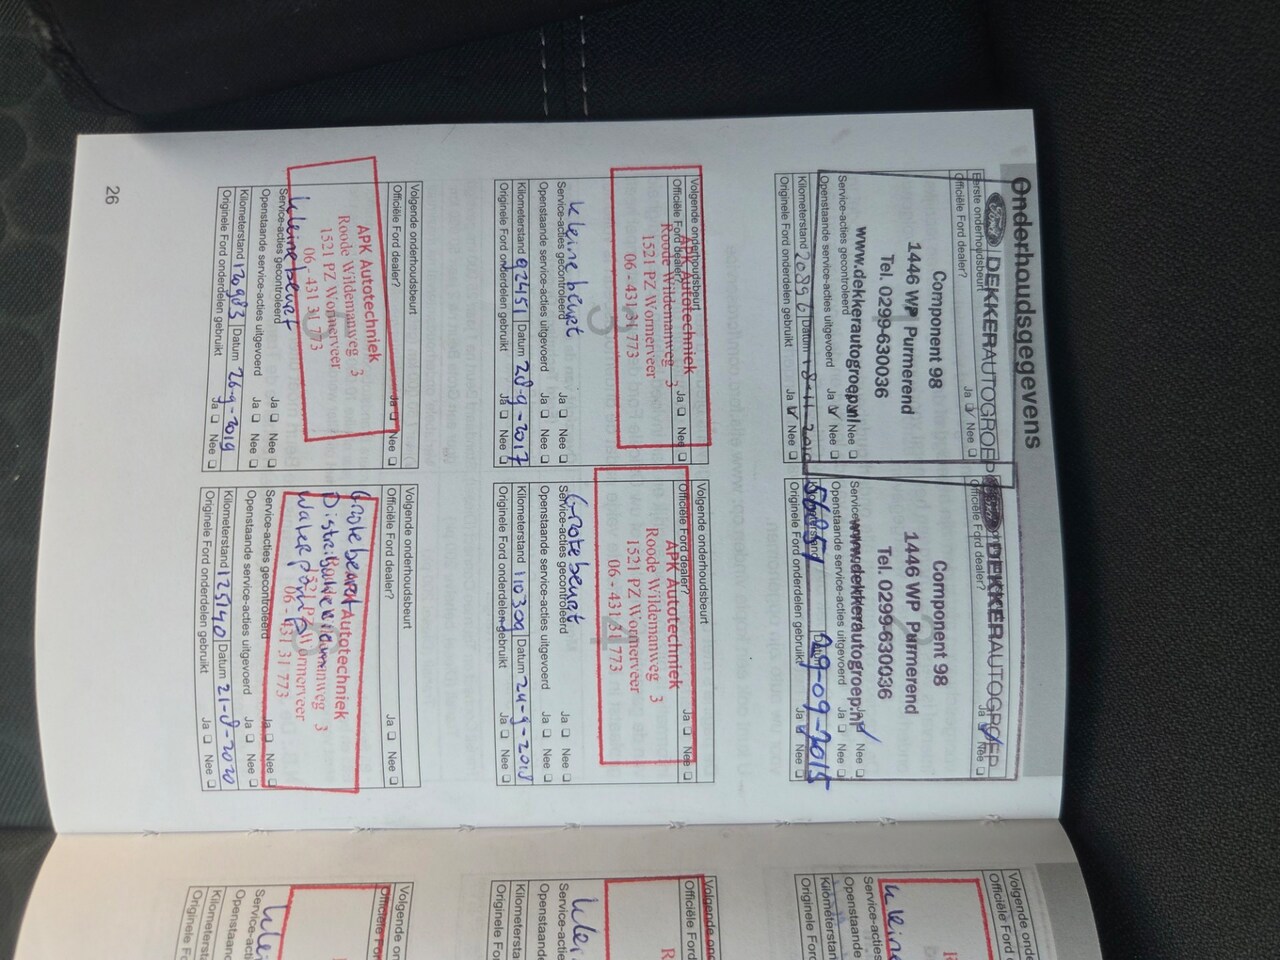 Onderhoudsgegevens
Eerste onderhoudsbeurt
Officiële Ford dealer? Ja Nee
Ford DEKKERAUTOGROEP
Component 98
1446 WP Purmerend
Tel. 0299-630036
www.dekkerautogroep.nl
Service-acties gecontroleerd Ja Nee
Openstaande service-acties uitgevoerd Ja Nee
Kilometerstand Datum
Originele Ford onderdelen gebruikt Ja Nee
Officiële Ford dealer? Ja Nee
DEKKERAUTOGROEP
Component 98
1446 WP Purmerend
Tel. 0299-630036
www.dekkerautogroep.nl
Nee
Openstaande service-acties uitgevoerd Ja Nee
56851 29-09-2015
Originele Ford onderdelen gebruikt Ja Nee
Volgende onderhoudsbeurt
Officiële Ford dealer? Ja Nee
APK Autotechniek
Roode Wildemanweg 3
1521 PZ Wormerveer
06 - 431 31 773
kleine beurt
Service-acties gecontroleerd Ja Nee
Openstaande service-acties uitgevoerd Ja Nee
Kilometerstand 92451 Datum 28-9-2017
Originele Ford onderdelen gebruikt Ja Nee
Volgende onderhoudsbeurt
Officiële Ford dealer? Ja Nee
APK Autotechniek
Roode Wildemanweg 3
1521 PZ Wormerveer
06 - 431 31 773
Grote beurt
Service-acties gecontroleerd Ja Nee
Openstaande service-acties uitgevoerd Ja Nee
Kilometerstand 110309 Datum 24-9-2018
Originele Ford onderdelen gebruikt Ja Nee
Volgende onderhoudsbeurt
Officiële Ford dealer? Ja Nee
APK Autotechniek
Roode Wildemanweg 3
1521 PZ Wormerveer
06 - 431 31 773
kleine beurt
Service-acties gecontroleerd Ja Nee
Openstaande service-acties uitgevoerd Ja Nee
Kilometerstand 120983 Datum 26-9-2019
Originele Ford onderdelen gebruikt Ja Nee
Volgende onderhoudsbeurt
Officiële Ford dealer? Ja Nee
Grote beurt Autotechniek
3
Wormerveer
06 - 431 31 773
Service-acties gecontroleerd Ja Nee
Openstaande service-acties uitgevoerd Ja Nee
Kilometerstand 125140 Datum 21-8-2020
Originele Ford onderdelen gebruikt Ja Nee
26
Volgende onde
Officiële Ford
kleine
Service-acties
Openstaande
Kilometerstan
Originele For
Volgende ond
Officiële Ford
klei
Service-acti
Openstaand
Kilometersta
Originele Fo
Volgende on
Officiële For
klei
Service-a
Openstaand
Kilometersta
Originele Fo